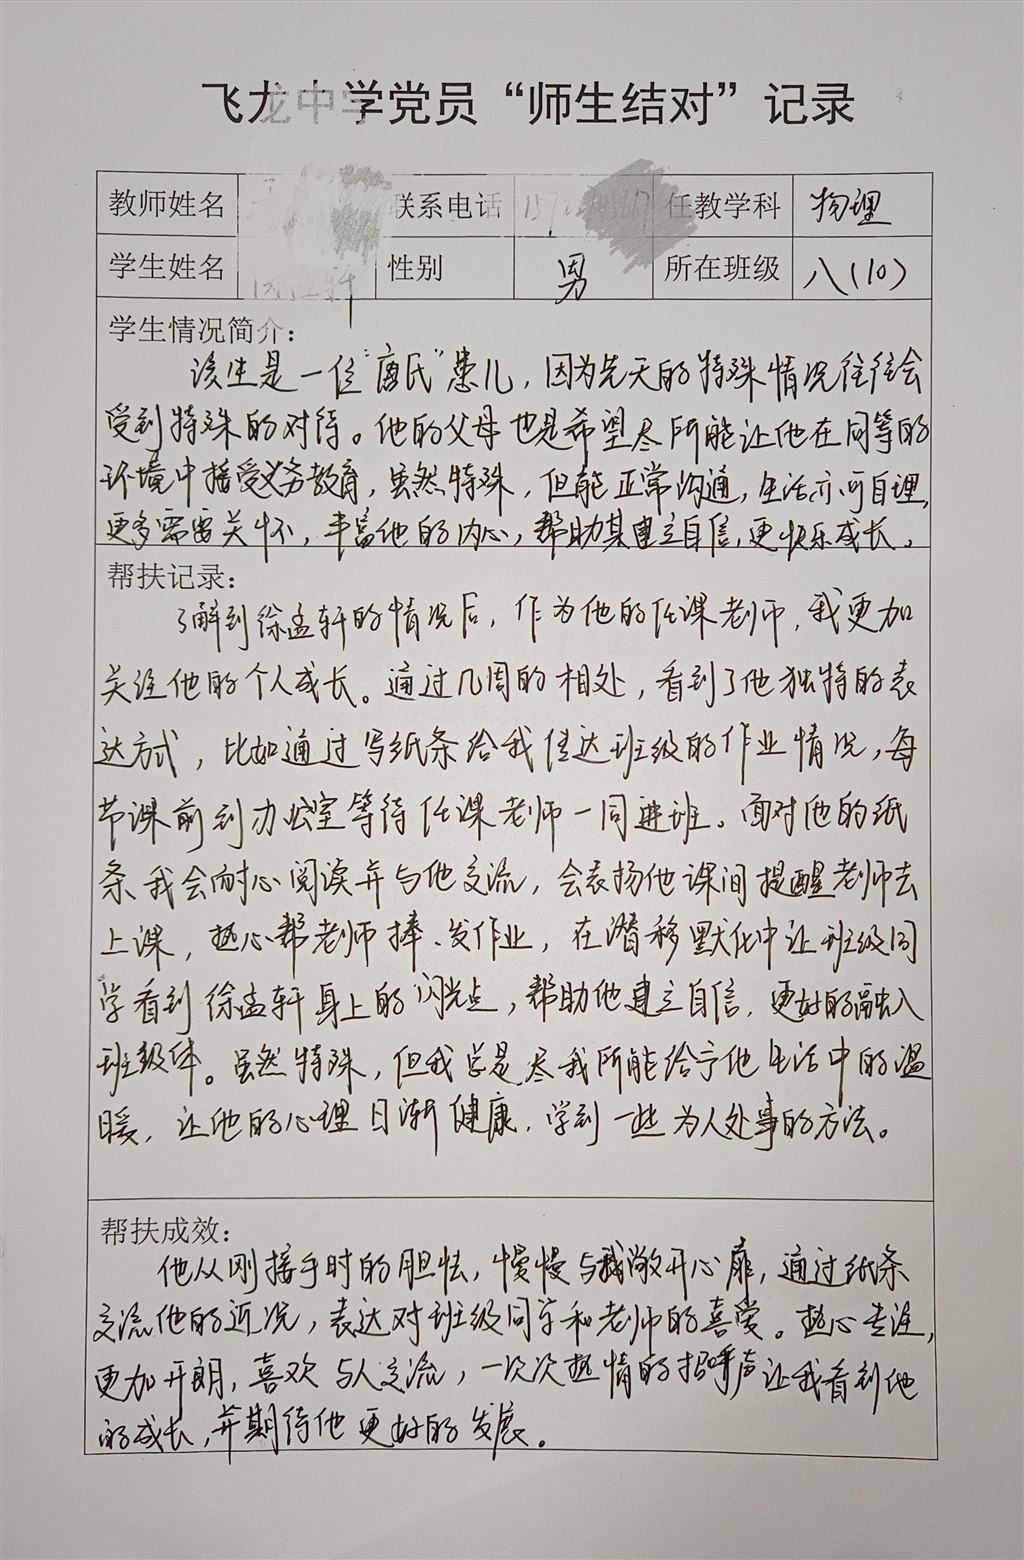 飞龙中学党员“师生结对”记录
教师姓名 联系电话 任教学科 物理
学生姓名 性别 男 所在班级 八(10)
学生情况简介：
该生是一位“唐氏”患儿，因为先天的特殊情况往往会
受到特殊的对待。他的父母也是希望尽所能让他在同等的
环境中接受义务教育，虽然特殊，但能正常沟通，生活亦可自理，
更多需要关怀，丰富他的内心，帮助其建立自信，更快乐成长。
帮扶记录：
了解到徐孟轩的情况后，作为他的任课老师，我更加
关注他的个人成长。通过几周的相处，看到了他独特的表
达方式，比如通过写纸条给我传达班级的作业情况，每
节课前到办公室等待任课老师一同进班。面对他的纸
条，我会耐心阅读并与他交流，会表扬他课间提醒老师去
上课，热心帮老师捧、发作业，在潜移默化中让班级同
学看到徐孟轩身上的闪光点，帮助他建立自信，更好的融入
班级体。虽然特殊，但我总是尽我所能给予他生活中的温
暖，让他的心理日渐健康，学到一些为人处事的方法。
帮扶成效：
他从刚接手时的胆怯，慢慢与我敞开心扉，通过纸条
交流他的近况，表达对班级同学和老师的喜爱。热心专注，
更加开朗，喜欢与人交流，一次次热情的招呼声让我看到他
的成长，并期待他更好的发展。